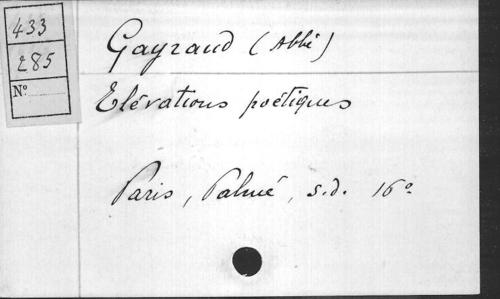 433
285
N°
Gayraud (Abbé)
Elévations poétiques
Paris, Palmé, s.d. 16°